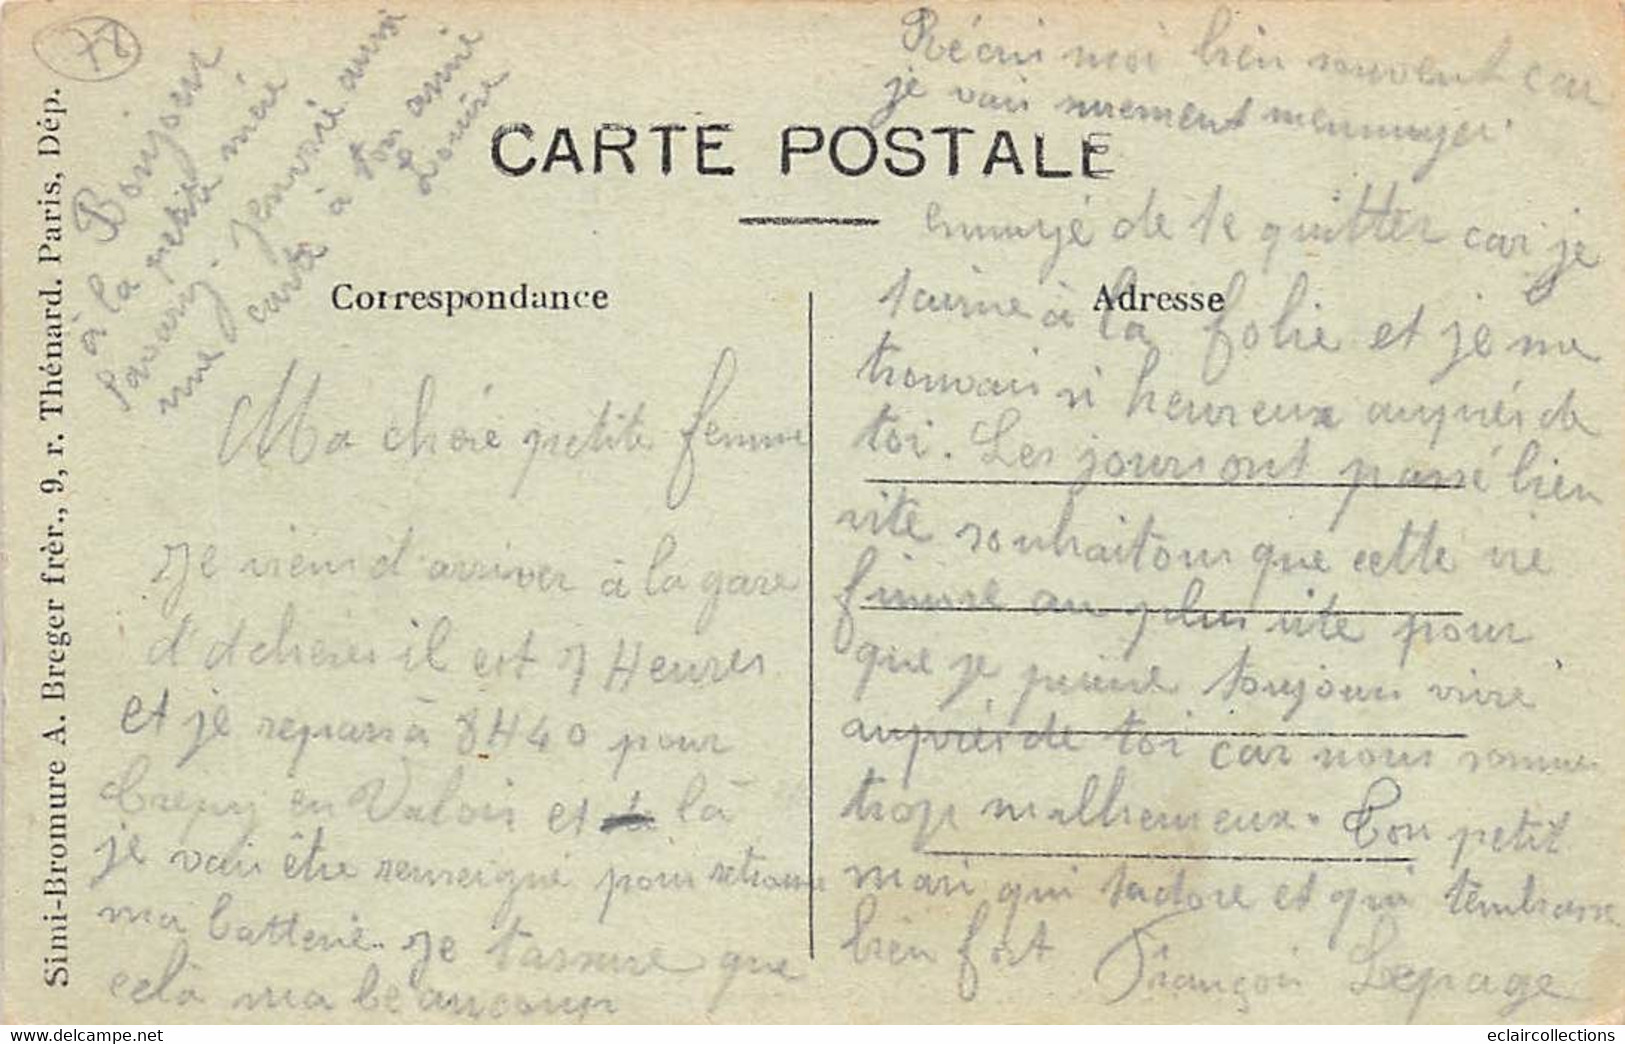 78
Bonjour
à la petite mère
Savary. Jenvoié aussi
une carte à ton amie
Louise
Récris moi bien souvent car
je vais surement mennuyer
CARTE POSTALE
Correspondance
Adresse
Simi-Bromure A. Breger frèr., 9, r. Thénard. Paris, Dép.
Ma chère petite femme
Je viens d'arriver à la gare
d'Achères il est 7 Heures
et je repars à 8H40 pour
Crépy en Valois et là
je vais être renseigné pour retrouver
ma batterie. Je tassure que
celà ma beaucoup
ennuyé de te quitter car je
taime à la folie et je me
trouvais si heureux auprès de
toi. Les jours ont passé bien
vite souhaitons que cette vie
finisse au plus vite pour
que je puisse toujours vivre
auprès de toi car nous sommes
trop malheureux. Ton petit
mari qui tadore et qui tembrasse
bien fort François Lepage
eclaircollections